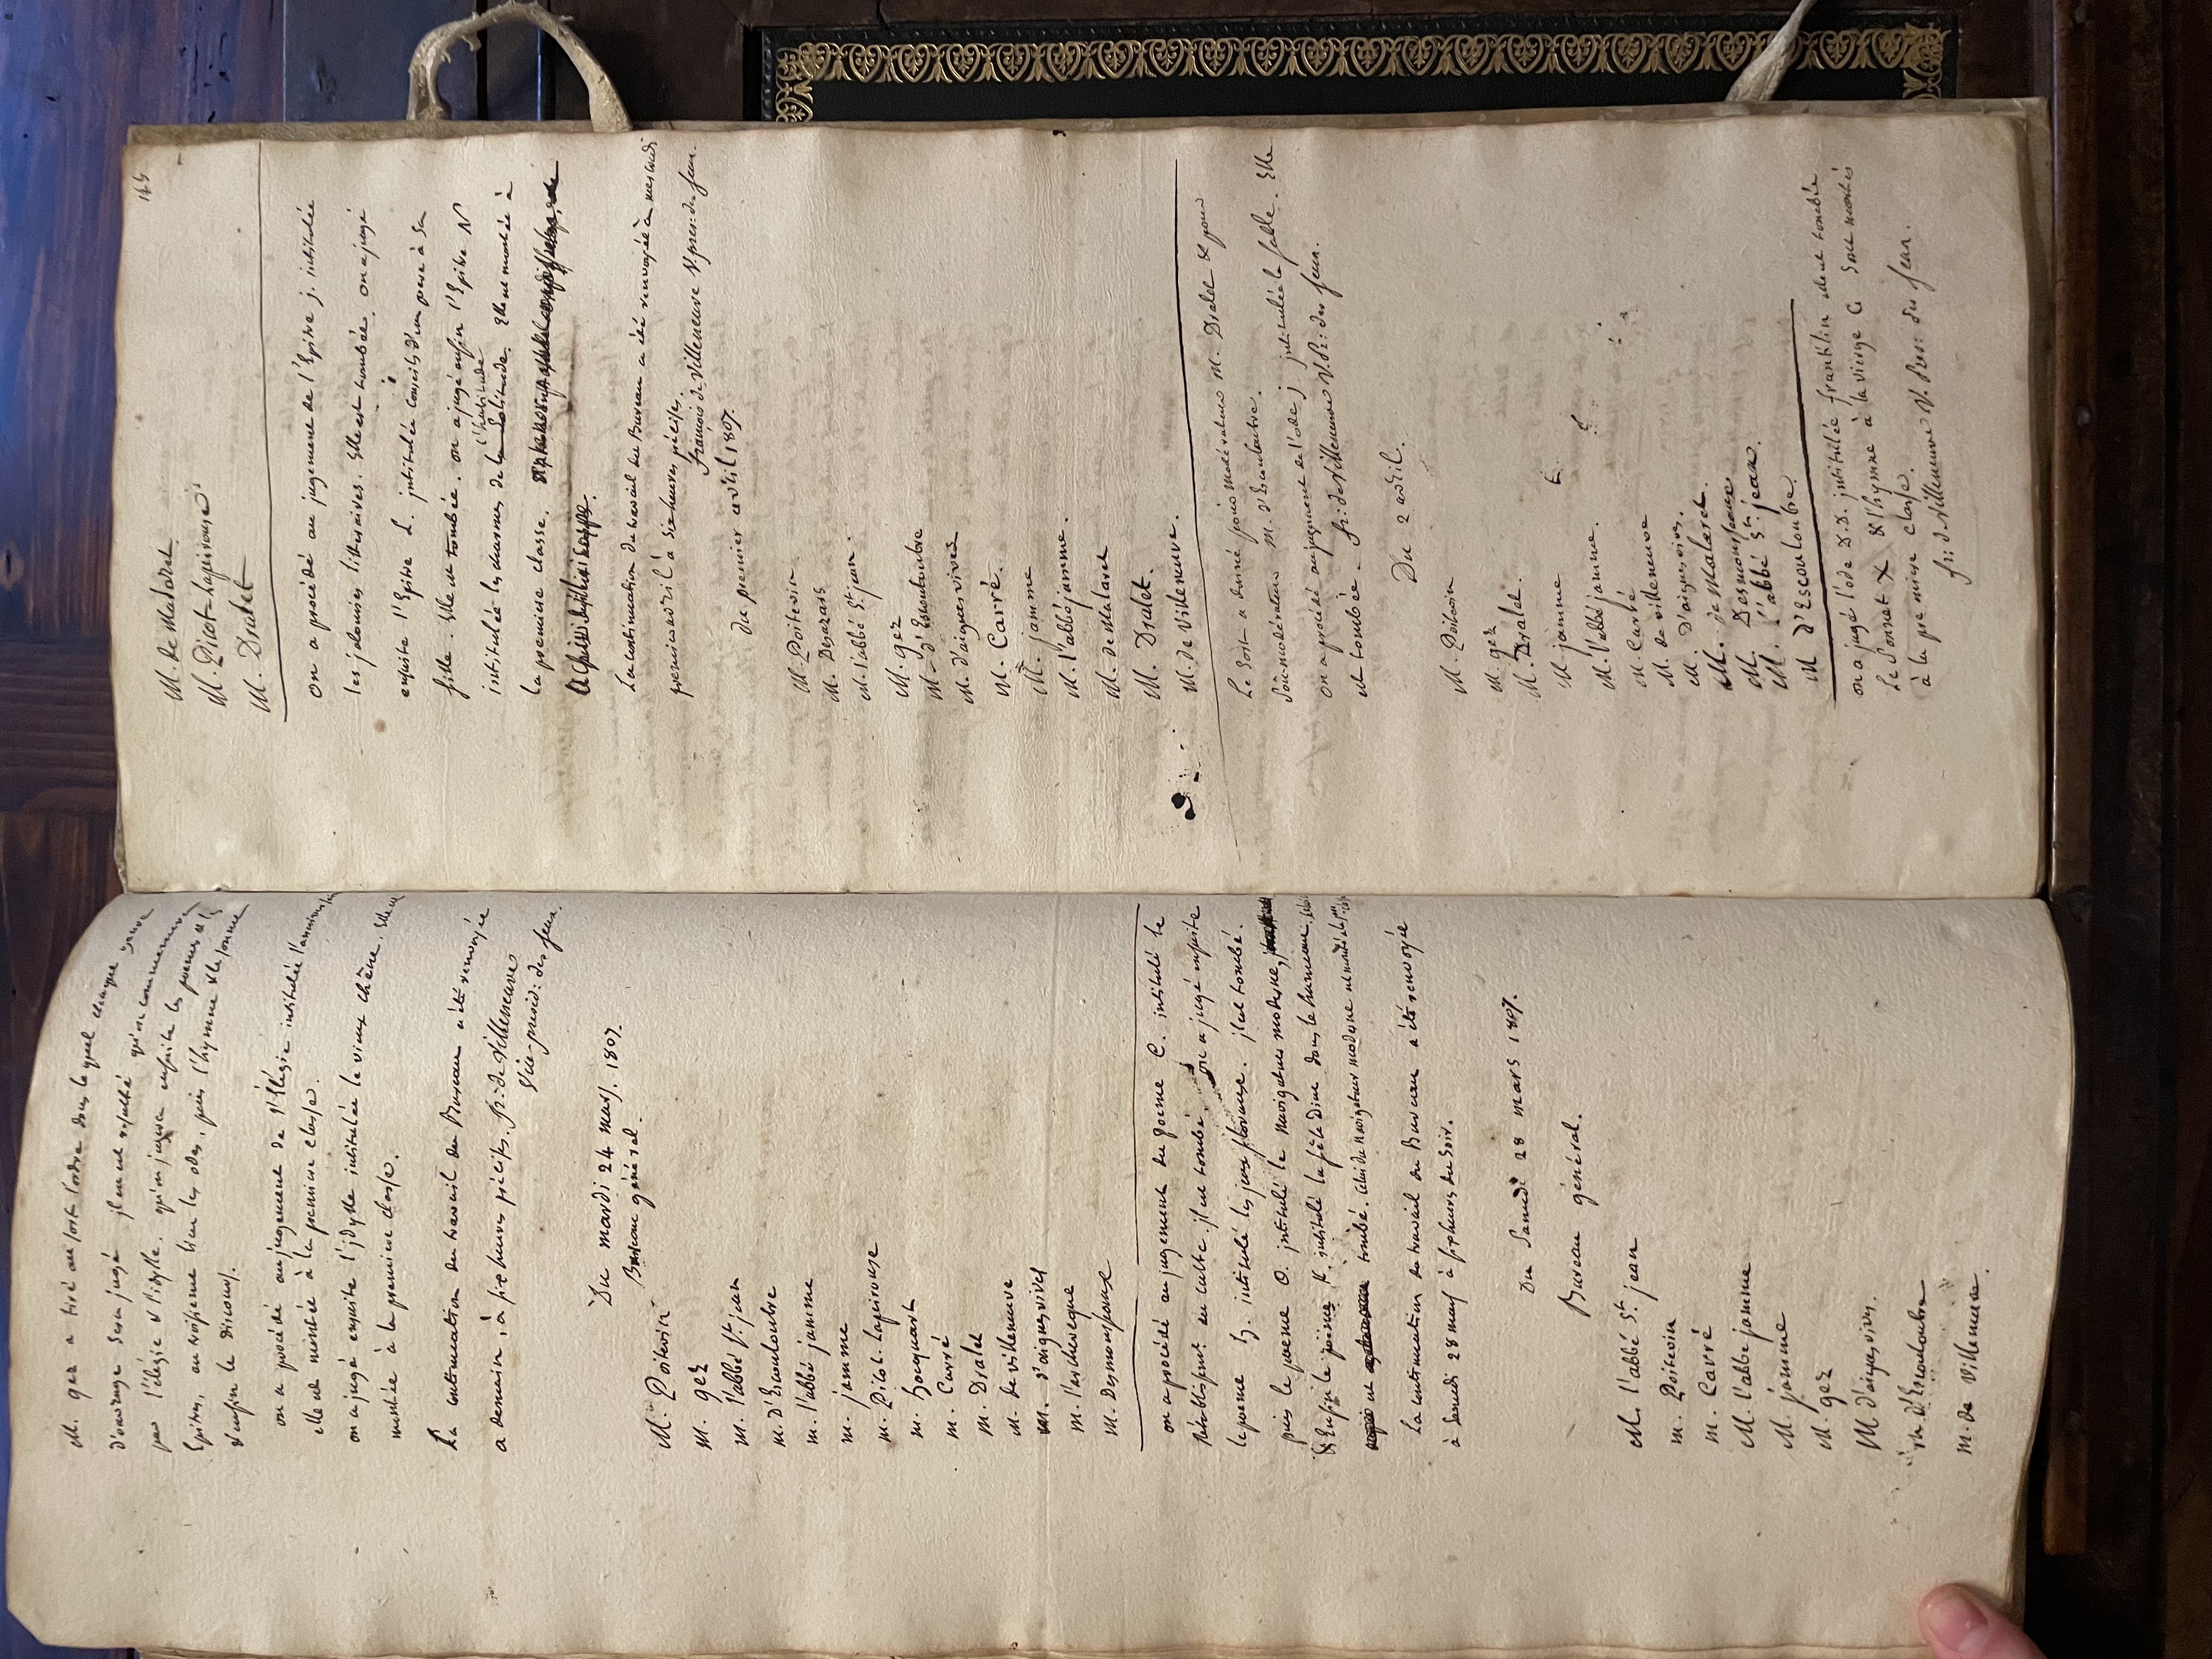 M. gez a tiré au sort l'ordre dans lequel chaque genre
d'ouvrage sera jugé il en est resulté qu'on commencera
par l'élégie et l'idylle. qu'on jugera ensuite les poemes et les
Epitres, en troisieme lieu les odes, puis l'hymne et le sonnet
& enfin le discours.
on a procédé au jugement de l'Elégie intitulée
elle est montée à la premiere classe.
on a jugé ensuite l'idylle intitulée le vieux chêne. Elle est
montée à la premiere classe.
La continuation du travail du Bureau a été renvoyée
a demain, à six heures précises. fr: de Villeneuve
Vice-presid: des jeux.
Du mardi 24 mars. 1807.
Bureau général.
M. Poitevin
M. gez
M. l'abbé St. jean
M. d'Escouloubre
M. l'abbé jamme
M. jamme
M. Picot Lapeirouse
M. hocquart
M. Carré
M. Dralet
M. de villeneuve
M. d'aiguesvives
M. l'archeveque
M. Desmousseaux
on a procédé au jugement du poeme C. intitulé le
Rétablissemt. du culte. il est tombé. on a jugé ensuite
le poeme intitulé les jeux floraux. il est tombé.
puis le poeme O. intitulé le navigateur moderne,
& Enfin le poeme K. intitulé la fête Dieu dans le hameau.
est tombé. Celui du navigateur moderne est monté
La continuation du travail du Bureau a été renvoyée
à samedi 28 mars à six heures du soir.
Du Samedi 28 mars 1807.
Bureau général.
M. l'abbé St. jean
M. Poitevin
M. Carré
M. l'abbé jamme
M. jamme
M. gez
M. d'aiguesvives.
M. d'Escouloubre
M. de Villeneuve.
145
M. de Malaret.
M. Picot-Lapeirouse
M. Dralet
on a procédé au jugement de l'Epitre j. intitulée
les jalousies litteraires. Elle est tombée. on a jugé
ensuite l'Epitre L. intitulée Conseils d'un pere à sa
fille. Elle est tombée. on a jugé enfin l'Epitre N
l'habitude
intitulée les charmes de la Solitude. Elle est montée à
la premiere classe.
La continuation du travail du Bureau a été renvoyée à mercredi
premier avril à six heures précises.
françois de Villeneuve V. presid: des jeux.
du premier avril 1807.
M. Poitevin
M. Desazars
M. l'abbé St. jean.
M. gez
M. d'Escouloubre
M. d'aiguesvives
M. Carré.
M. jamme
M. l'abbé jamme.
M. de Malaret
M. Dralet.
M. de Villeneuve.
Le sort a donné pour modérateur M. Dralet & pour
sous-modérateur M. d'Escouloubre.
on a procédé au jugement de l'ode j intitulée la fable. Elle
est tombée. fr: de Villeneuve V. Pr: des jeux.
Du 2 avril.
M. Poitevin
M. gez
M. Dralet.
M. jamme
M. l'abbé jamme.
M. Carré
M. de villeneuve
M. d'aiguesvives.
M. de Malaret.
M. Desmousseaux
M. l'abbé St. jean.
M d'Escouloubre.
on a jugé l'ode intitulée franklin elle est tombée
Le Sonnet X & l'hymne à la vierge C sont montés
à la premiere classe.
fr: de Villeneuve V. Pres: des jeux.